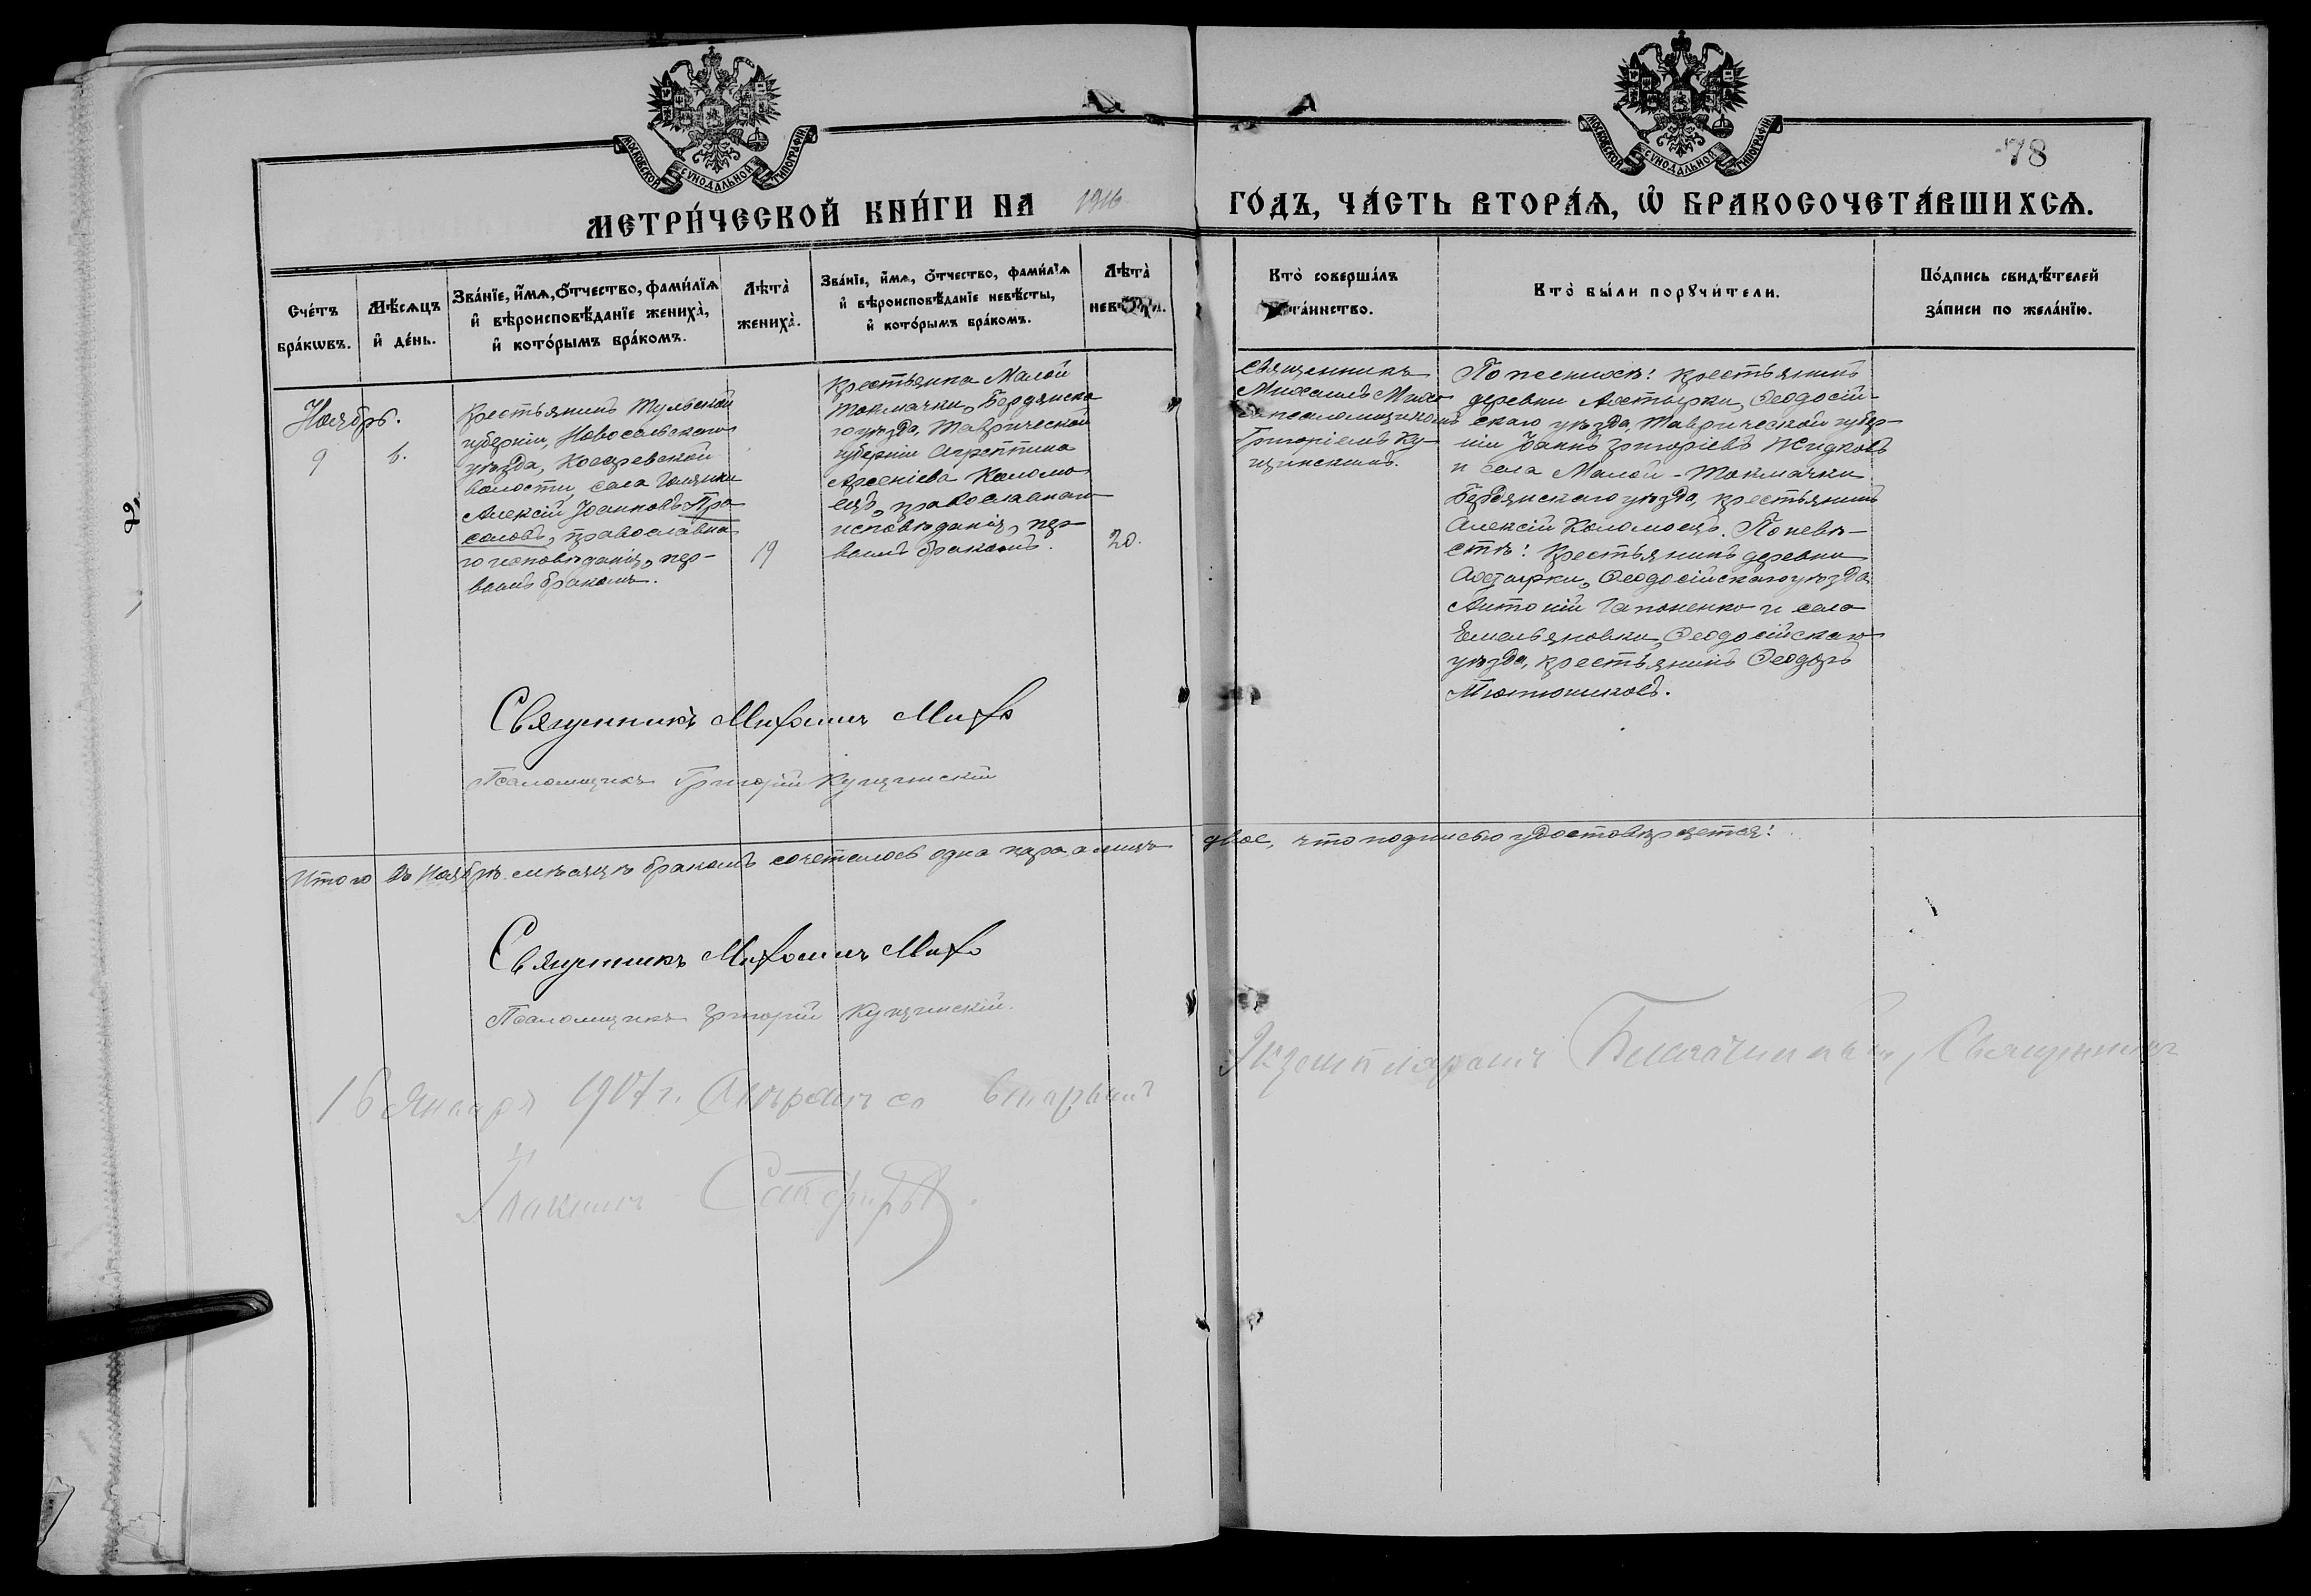 МОСКОВСКОЙ СѴНОДАЛЬНОЙ ТИПОГРАФІИ
МОСКОВСКОЙ СѴНОДАЛЬНОЙ ТИПОГРАФІИ
78
МЕТРИ́ЧЕСКОЙ КНИ́ГИ НА 1916 ГО́ДЪ, ЧА́СТЬ ВТОРА́Ѧ, Ѽ БРАКОСОЧЕТА́ВШИХСѦ.
Сче́тъ бра́кѡвъ.
Мѣ́сѧцъ и҆ де́нь.
Зва́нїе, и҆́мѧ, ѻ҆́тчество, фами́лїѧ
и҆ вѣроисповѣ́данїе жениха̀,
и҆ кото́рымъ бра́комъ.
Лѣта̀ жениха̀.
Зва́нїе, и҆́мѧ, ѻ҆́тчество, фами́лїѧ
и҆ вѣроисповѣ́данїе невѣ́сты,
и҆ кото́рымъ бра́комъ.
Лѣта̀
Кто̀ соверша́лъ
та́инство.
Кто̀ бы́ли порꙋчи́тели.
По́дпись свидѣ́телей
за́писи по жела́нїю.
Ноябрь.
9
6.
Крестьянинъ Тульской
губерніи, Новосильскаго
уѣзда,
волости, села
Алексій Іоанновъ Пра
соловъ, православна
го исповѣданія, пер-
вымъ бракомъ.
19
Крестьянка Малой
Токмачки, Бердянска
го уѣзда, Таврической
губерніи Агриппина
Арсеніева Коломо
ецъ, православнаго
исповѣданія, пер-
вымъ бракомъ.
20.
Священникъ
Михаилъ Михо
съ псаломщикомъ
Григоріемъ Ку-
По женихѣ: крестьянинъ
деревни Ахтырки, Ѳеодосій-
скаго уѣзда, Таврической губер-
ніи Іоаннъ Григоріевъ Жидковъ
и села Малой-Токмачки
Бердянскаго уѣзда, крестьянинъ
Алексій Коломоецъ. По невѣ-
стѣ: крестьянинъ деревни
Ахтырки, Ѳеодосійскаго уѣзда
Антоній Гапоненко и села
Емельяновки, Ѳеодосійскаго
уѣзда, крестьянинъ Ѳеодоръ
Тютюниковъ.
Священникъ Михаилъ Михо
Псаломщикъ Григорій
Итого въ Ноябрѣ мѣсяцѣ бракомъ сочеталось одна пара, а лицъ двое, что подписью удостовѣряется:
Священникъ Михаилъ Михо
Псаломщикъ Григорій
16 Января 1917 г. Свѣрялъ со вторымъ Экземпляромъ Благочинный, Священникъ